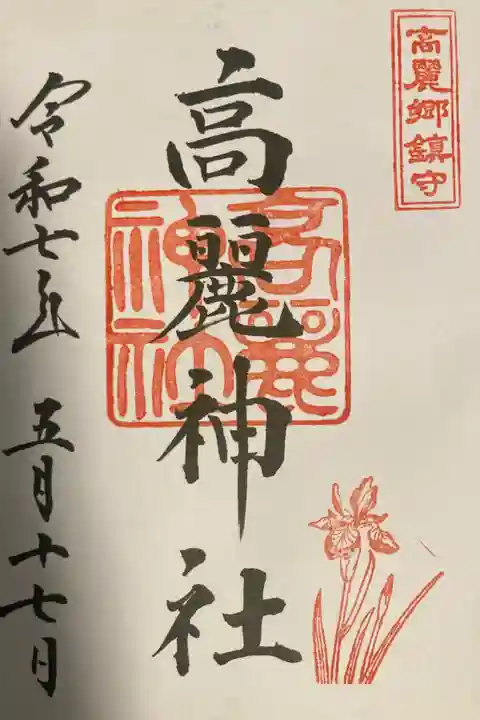 高麗郷鎮守
高麗神社
高麗
神社
令和七年 五月十七日